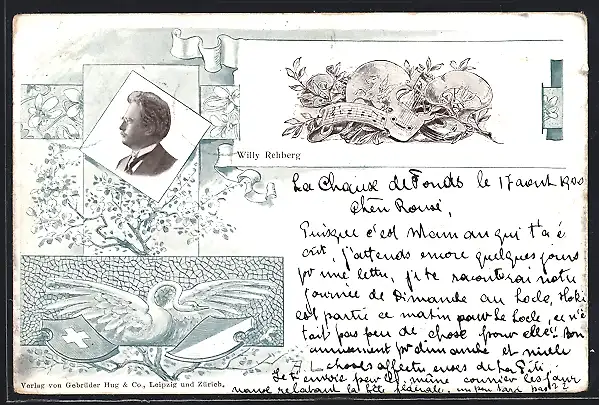 Willy Rehberg
La Chaux de Fonds le 17 août 1900
Chên Rousi,
Puisque c'est Maman qui t'a é
crit, j'attends encore quelques jours
pr une lettre, je te raconterai notre
journée de Dimanche au Locle,
est partie ce matin pour le Locle, ce n'é
tait pas peu de chose pour elle! Bon
amusement pr dimanche et mille
choses affectueuses de ta
Je t'envoie par le même courrier les jour
naux relatant la fête fédérale, un peu tard
Verlag von Gebrüder Hug & Co., Leipzig und Zürich.